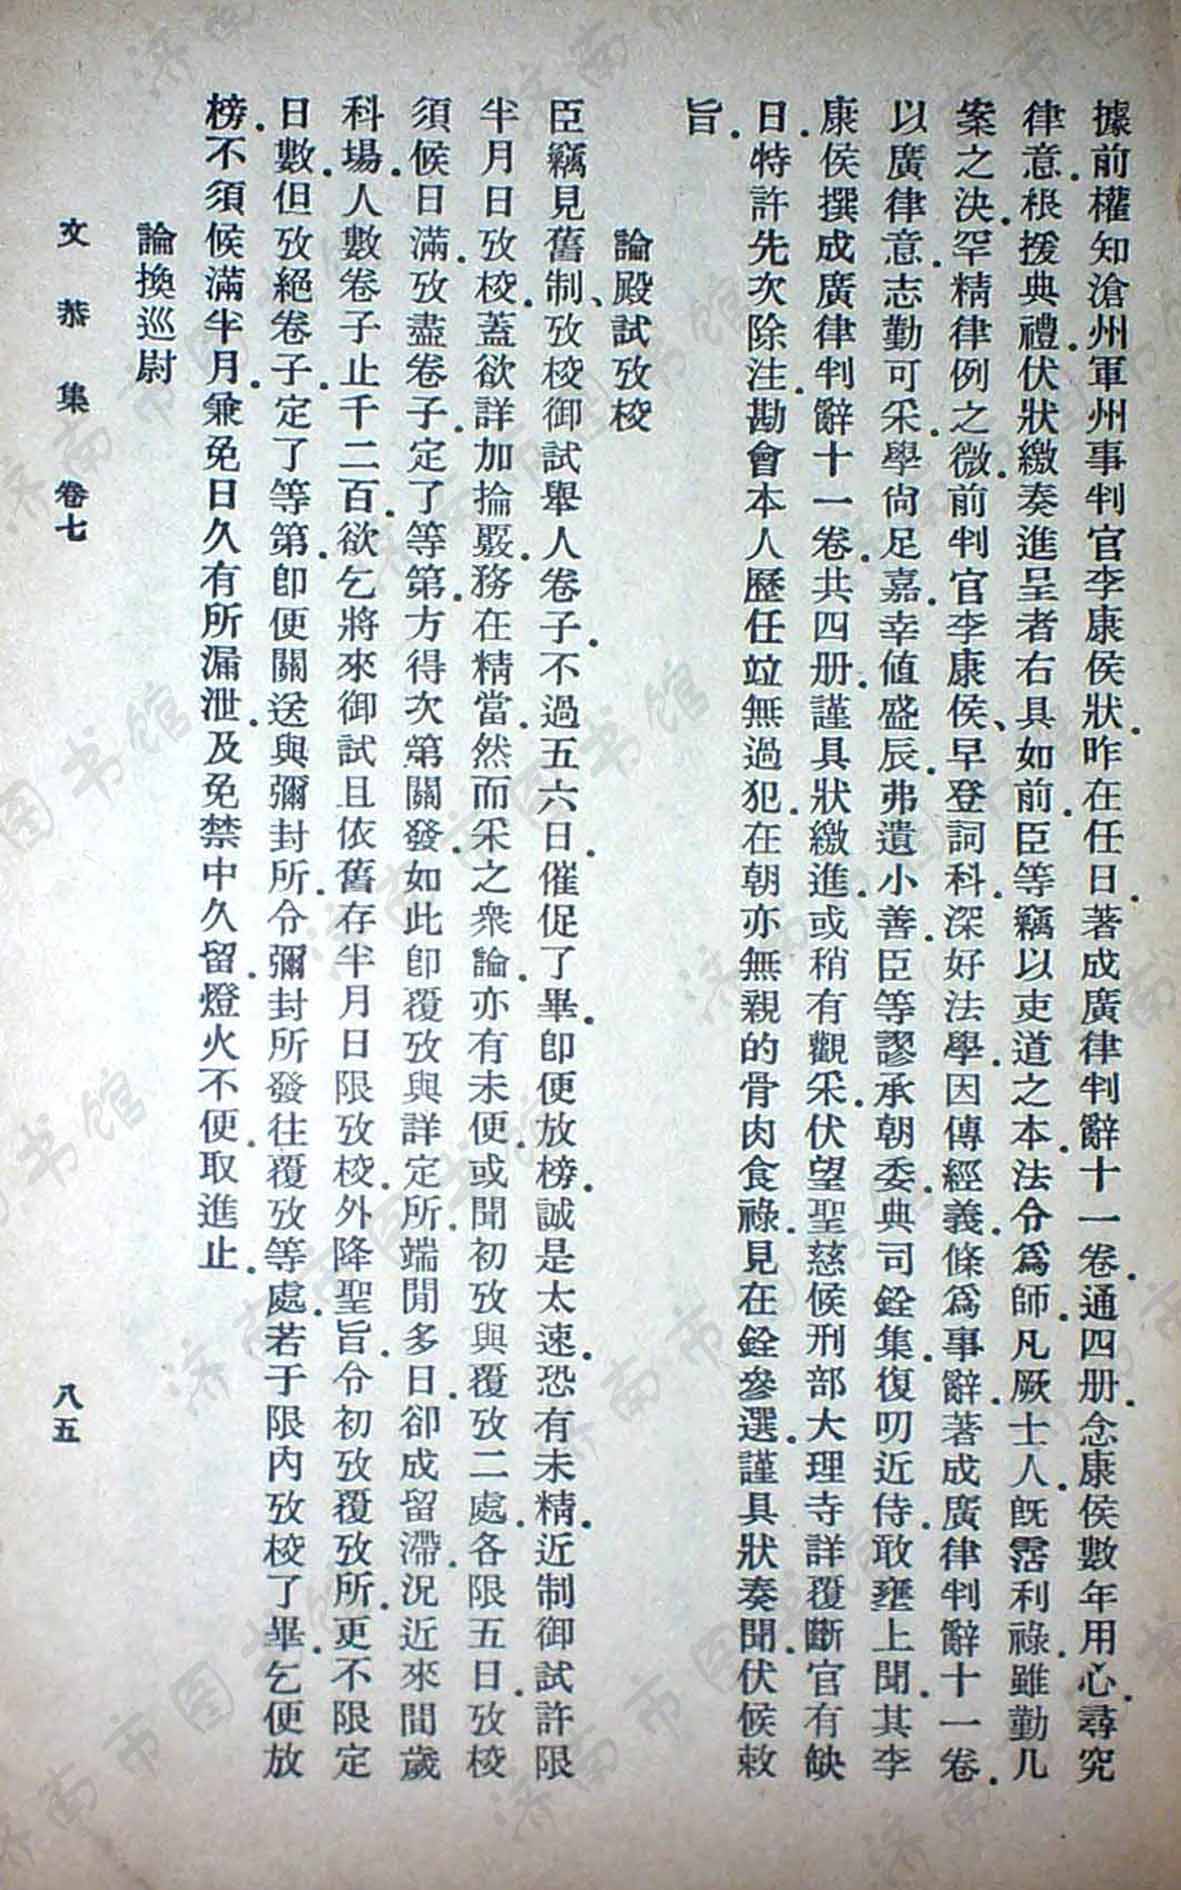 據前權知滄州軍州事判官李康侯狀.昨在任日.著成廣律判辭十一卷.通四册.念康侯數年用心.尋究
律意.根援典禮.伏狀繳奏進呈者右具如前.臣等竊以吏道之本.法令爲師.凡厥士人.旣霑利祿.雖勤几
案之決.罕精律例之微.前判官李康侯、早登詞科.深好法學.因傳經義.條爲事辭.著成廣律判辭十一卷.
以廣律意.志勤可采.學尙足嘉.幸値盛辰.弗遺小善.臣等謬承朝委.典司銓集.復叨近侍.敢壅上聞.其李
康侯撰成廣律判辭十一卷.共四册.謹具狀繳進.或稍有觀采.伏望聖慈候刑部大理寺詳覆斷官有缺
日.特許先次除注.勘會本人歷任竝無過犯.在朝亦無親的骨肉食祿.見在銓參選.謹具狀奏聞.伏候敕
旨.
論殿試攷校
臣竊見舊制、攷校御試舉人卷子.不過五六日.催促了畢.卽便放榜.誠是太速.恐有未精.近制御試許限
半月日攷校.蓋欲詳加掄覈.務在精當.然而采之衆論.亦有未便.或聞初攷與覆攷二處.各限五日.攷校
須候日滿.攷盡卷子.定了等第.方得次第關發.如此卽覆攷與詳定所.端閒多日.卻成留滯.況近來間歲
科場.人數卷子止千二百.欲乞將來御試且依舊存半月日限攷校.外降聖旨.令初攷覆攷所.更不限定
日數.但攷絕卷子.定了等第.卽便關送與彌封所.令彌封所發往覆攷等處.若于限內攷校了畢.乞便放
榜.不須候滿半月.兼免日久有所漏泄.及免禁中久留.燈火不便.取進止.
論換巡尉
文恭集 卷七 八五
济南市图书馆